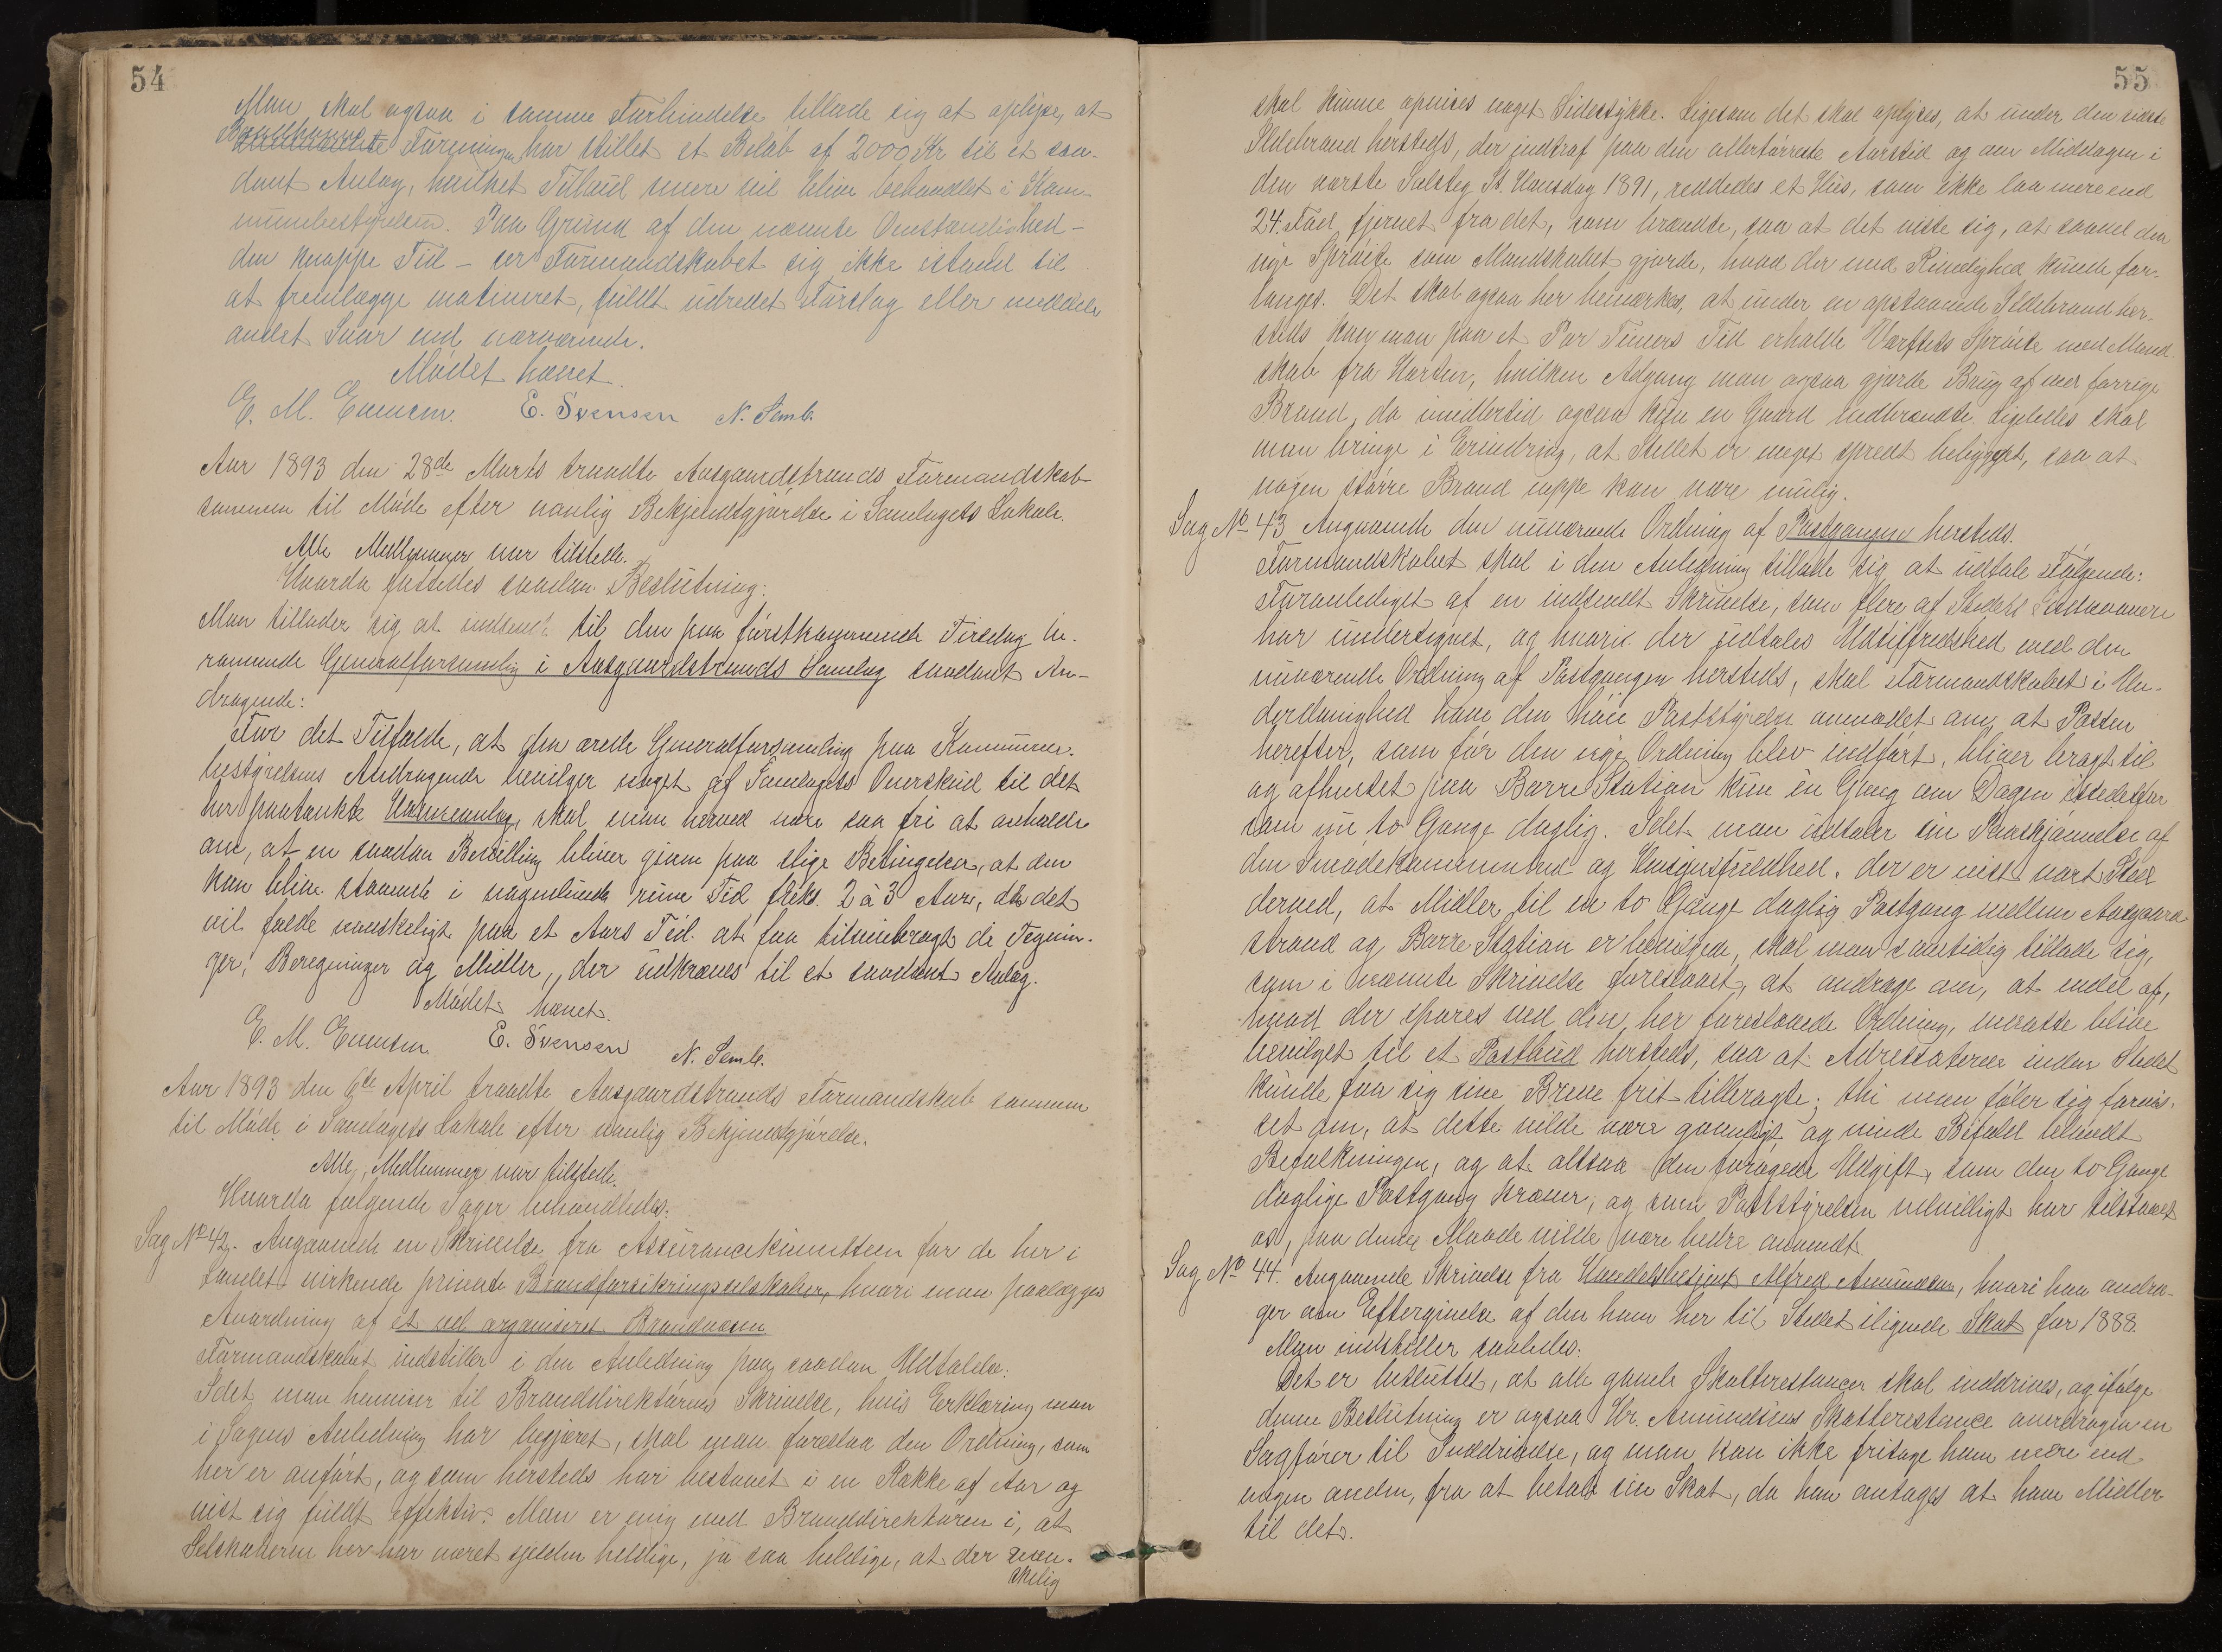 54
Man skal ogsaa i samme Forbindelse tillade sig at oplyse, at
Foreningen har stillet et Beløb af 2000 Kr til et saa-
dant Anlæg, hvilket Tilbud senere vil blive behandlet i Kom-
munebestyrelsen. Paa Grund af den nævnte Omstændighed –
den knappe Tid – ser Formandskabet sig ikke istand til
at fremlægge motiveret, fuldt udredet Forslag eller meddele
andet Svar end nærværende.
Mødet hævet.
E. M. Evensen. E. Svensen N. Semb.
Aar 1893 den 28de Marts traadte Aasgaardstrands Formandskab
sammen til Møde efter vanlig Bekjendtgjørelse i Samlagets Lokale.
Alle Medlemmer var tilstede.
Hvorda fattedes saadan Beslutning:
Man tillader sig at indsende til den paa førstkommende Tirsdag be-
rammede Generalforsamling i Aasgaardstrands Samlag saadant An-
dragende:
For det Tilfælde, at den ærede Generalforsamling paa Kommune-
bestyrelsens Andragende bevilger noget af Samlagets Overskud til det
her paatænkte Havneanlæg, skal man herved være saa fri at anholde
om, at en saadan Bevilling bliver given paa slige Betingelser, at den
kan blive staaende i nogenlunde rum Tid f.eks. 2 à 3 Aar, da det
vil falde vanskeligt paa et Aars Tid at faa tilveiebragt de Tegnin-
ger, Beregninger og Midler, der udkræves til et saadant Anlæg.
Mødet hævet.
E. M. Evensen. E. Svensen N. Semb.
Aar 1893 den 6te April traadte Aasgaardstrands Formandskab sammen
til Møde i Samlagets Lokale efter vanlig Bekjendtgjørelse.
Alle Medlemmer var tilstede.
Hvorda følgende Sager behandledes:
Sag No 42. Angaaende en Skrivelse fra Assurancekomiteen for de her i
Landet virkende private Brandforsikringsselskaber, hvori man paalægges
Anordning af et vel organiseret Brandvæsen
Formandskabet indstiller i den Anledning paa saadan Udtalelse:
Idet man henviser til Branddirektørens Skrivelse, hvis Erklæring man
i Sagens Anledning har begjæret, skal man foreslaa den Ordning, som
her er anført, og som hersteds har bestaaet i en Række af Aar og
vist sig fuldt effektiv. Man er enig med Branddirektøren i, at
Selskaberne her har været sjelden heldige, ja saa heldige, at der van-
skelig
55
skal kunne opvises noget Sidestykke. Ligesom det skal oplyses, at under den sidste
Ildebrand hersteds, der indtraf paa den allertørreste Aarstid og om Middagen i
den værste Solsteg St. Hansdag 1891, reddedes et Hus, som ikke laa mere end
24 Fod fjernet fra det, som brændte, saa at det viste sig, at saavel den
nye Sprøite som Mandskabet gjorde, hvad der med Rimelighed kunde for-
langes. Det skal ogsaa her bemærkes, at under en opstaaende Ildebrand her-
steds kan man paa et Par Timers Tid erholde Værftets Sprøite med Mand-
skab fra Horten, hvilken Adgang man ogsaa gjorde Brug af ved forrige
Brand, da imidlertid ogsaa kun en Gaard nedbrændte. Ligeledes skal
man bringe i Erindring, at Stedet er meget spredt bebygget, saa at
nogen større Brand neppe kan være mulig.
Sag No 43 Angaaende den nuværende Ordning af Postgangen hersteds.
Formandskabet skal i den Anledning tillade sig at udtale Følgende:
Foranlediget af en indsendt Skrivelse, som flere af Stedets
har undertegnet, og hvori der udtales Utilfredshed med den
nuværende Ordning af Postgangen hersteds, skal Formandskabet i Un-
derdanighed have den høie Poststyrelse anmodet om, at Posten
herefter, som før den nye Ordning blev indført, bliver bragt til
og afhentet paa Borre Station kun én Gang om Dagen istedetfor
som nu to Gange daglig. Idet man udtaler sin Paaskjønnelse af
den Imødekommenhed og Hensynsfuldhed, der er vist vort Sted
derved, at Midler til en to Gange daglig Postgang mellem Aasgaard-
strand og Borre Station er bevilgede, skal man samtidig tillade sig,
som i nævnte Skrivelse foreslaaet, at andrage om, at endel af,
hvad der spares ved den her foreslaaede Ordning, maatte blive
bevilget til et Postbud hersteds, saa at Adressaterne inden Stedet
kunde faa sig sine Breve frit tilbragte; thi man føler sig forvis-
set om, at dette vilde være gavnligt og vinde Bifald blandt
Befolkningen, og at altsaa den forøgede Udgift, som den to Gange
daglige Postgang kræver, og som Poststyrelsen velvilligt har tilstaaet
os, paa denne Maade vilde være bedre anvendt.
Sag No 44. Angaaende Skrivelse fra Handelsbetjent Alfred Amundsen, hvori han andra-
ger om Eftergivelse af den ham her til Stedet ilignede Skat for 1888.
Man indstiller saaledes:
Det er besluttet, at alle gamle Skatterestancer skal inddrives, og ifølge
denne Beslutning er ogsaa Hr. Amundsens Skatterestance overdragen en
Sagfører til Inddrivelse, og man kan ikke fritage ham mere end
nogen anden, fra at betale sin Skat, da han antages at have Midler
til det.